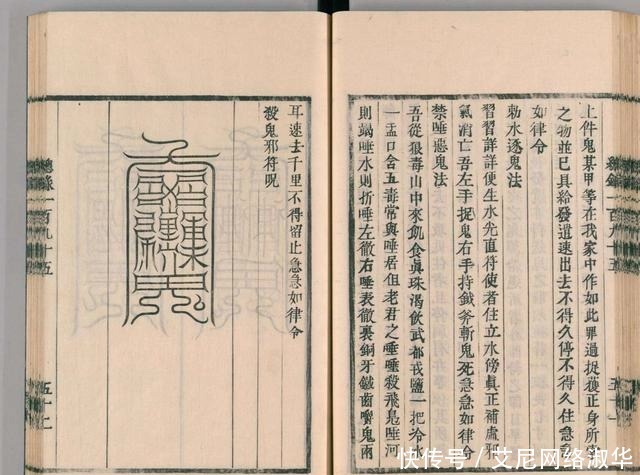 總錄一百九十五
五十一
上件鬼某甲等在我家中作如此罪過捉獲正身所索
之物並已具給發遣速出去不得久停不得久住急急
如律令
勑水逐鬼法
習習詳詳便生水先直符使者住立水傍眞正補處邪
氣消亡吾左手捉鬼右手持鐵斧斬鬼死急急如律令
禁唾惡鬼法
吾從狼毒山中來飢食眞珠渴飲武都戎鹽一把冷
一盂口含五毒常與唾居但老君之唾唾殺飛鳧唾河
則竭唾水則折唾左徹右唾表徹裏銅牙鐵齒嚼鬼兩
耳速去千里不得留止急急如律令
殺鬼邪符呪
總錄一百九十五
五十二
快传号/艾尼网络淑华